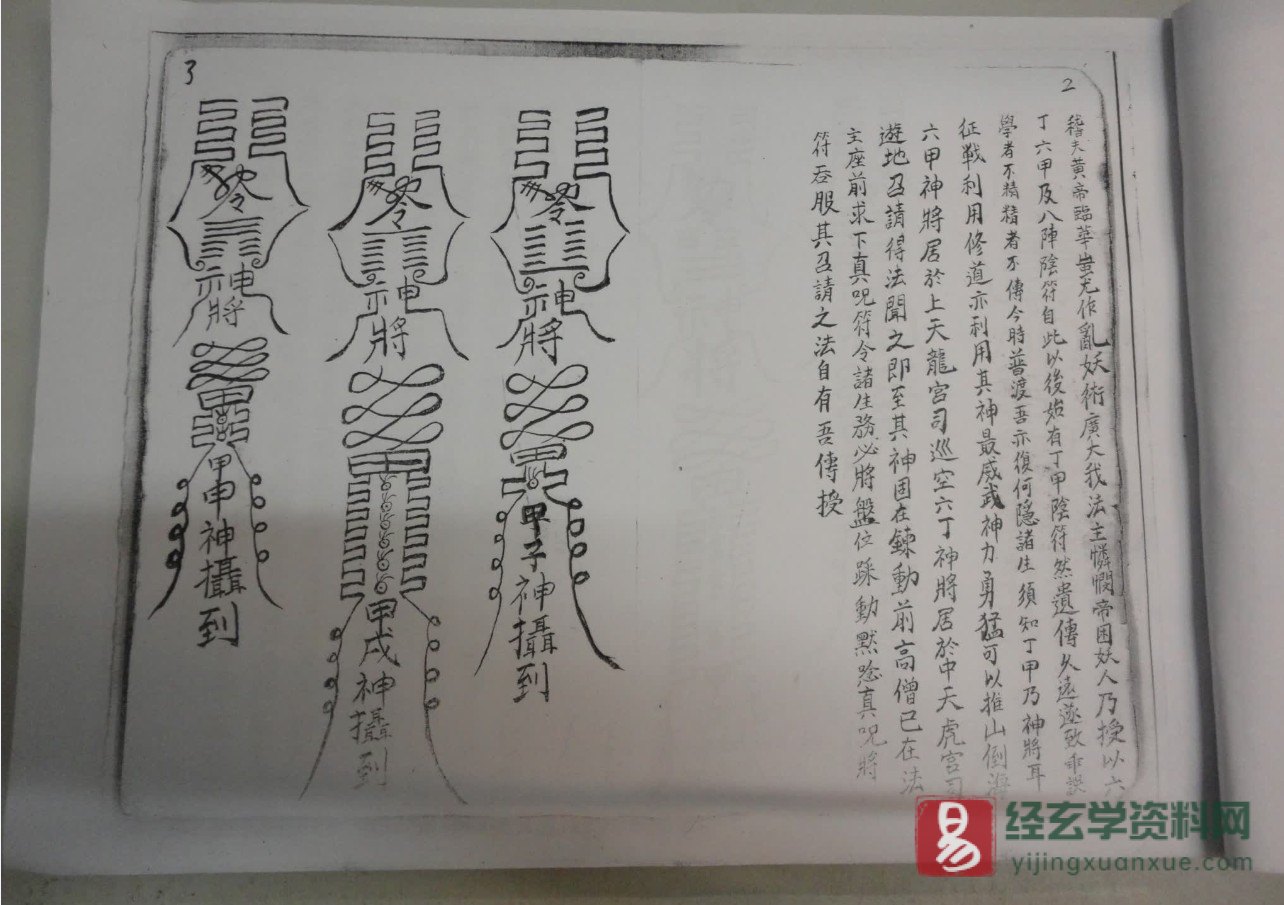 2
稽夫黄帝臨華蚩尤作亂妖術廣大我法主憐憫帝困妖人乃授以六
丁六甲及八陣陰符自此以後始有丁甲陰符然遺傳久遠遂致乖誤
學者不精精者不傳今時普渡吾亦復何隱諸生須知丁甲乃神將耳
征戰利用修道亦利用其神最威武神力勇猛可以推山倒海
六甲神將居於上天龍宫司巡空六丁神將居於中天虎宫司
遊地召請得法聞之即至其神固在鍊動前高僧已在法
主座前求下真呪符令諸生務必將盤位踩動默唸真呪將
符吞服其召請之法自有吾傳授
3
神將
甲子神攝到
神將
甲戌神攝到
神將
甲申神攝到
易
经玄学资料网
yijingxuanxue.com